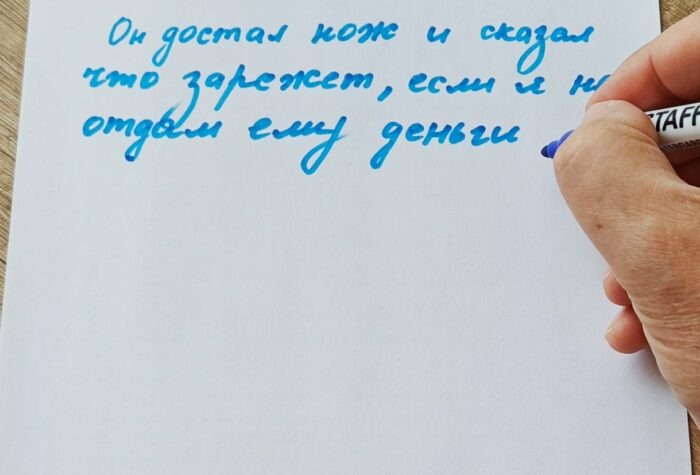 Он достал нож и сказал
что зарежет, если я не
отдам ему деньги
STAFF